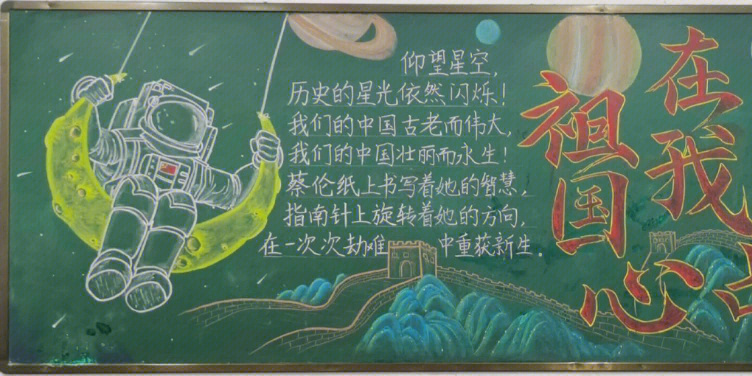 仰望星空，
历史的星光依然闪烁！
我们的中国古老而伟大，
我们的中国壮丽而永生！
蔡伦纸上书写着她的智慧，
指南针上旋转着她的方向，
在一次次劫难 中重获新生。
祖国
在我
心